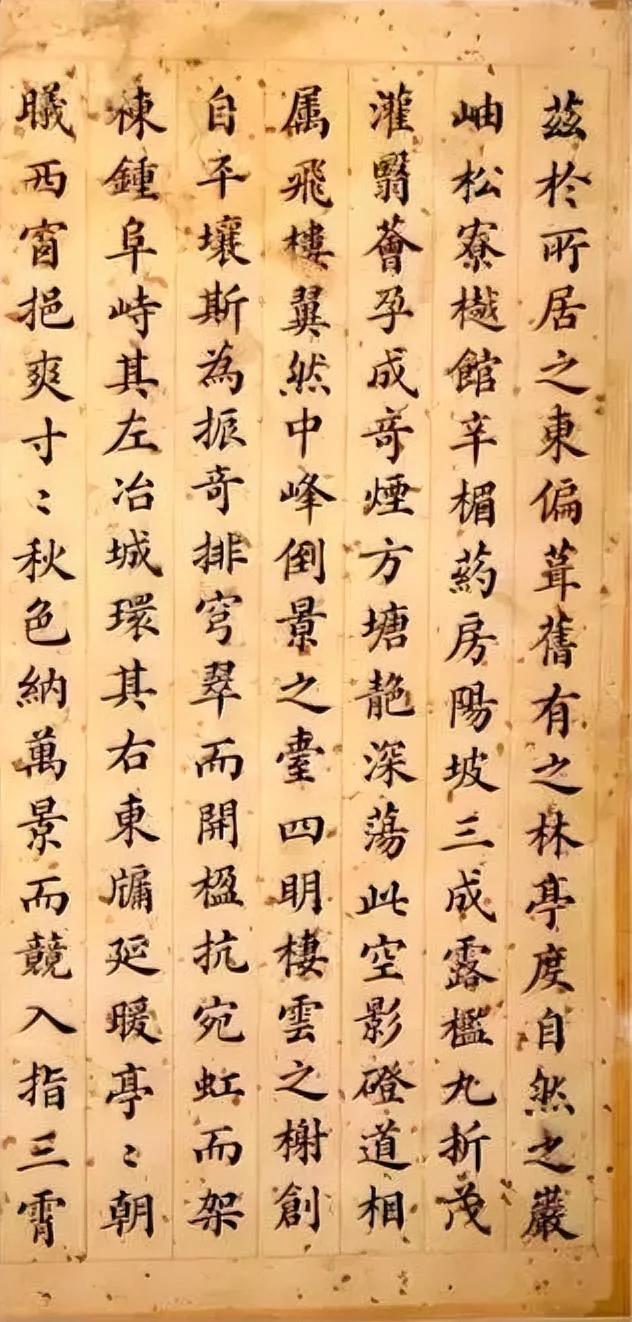 茲於所居之東偏葺舊有之林亭度自然之巖
岫松寮樾館辛楣葯房陽坡三成露檻九折茂
灌翳薈孕成奇煙方塘艶深蕩此空影磴道相
属飛樓翼然中峰倒景之臺四明棲雲之榭創
自平壤斯為振奇排穹翠而開楹抗宛虹而架
棟鍾阜峙其左冶城環其右東牖延暖亭〻朝
曦西窗挹爽寸〻秋色納萬景而競入指三霄